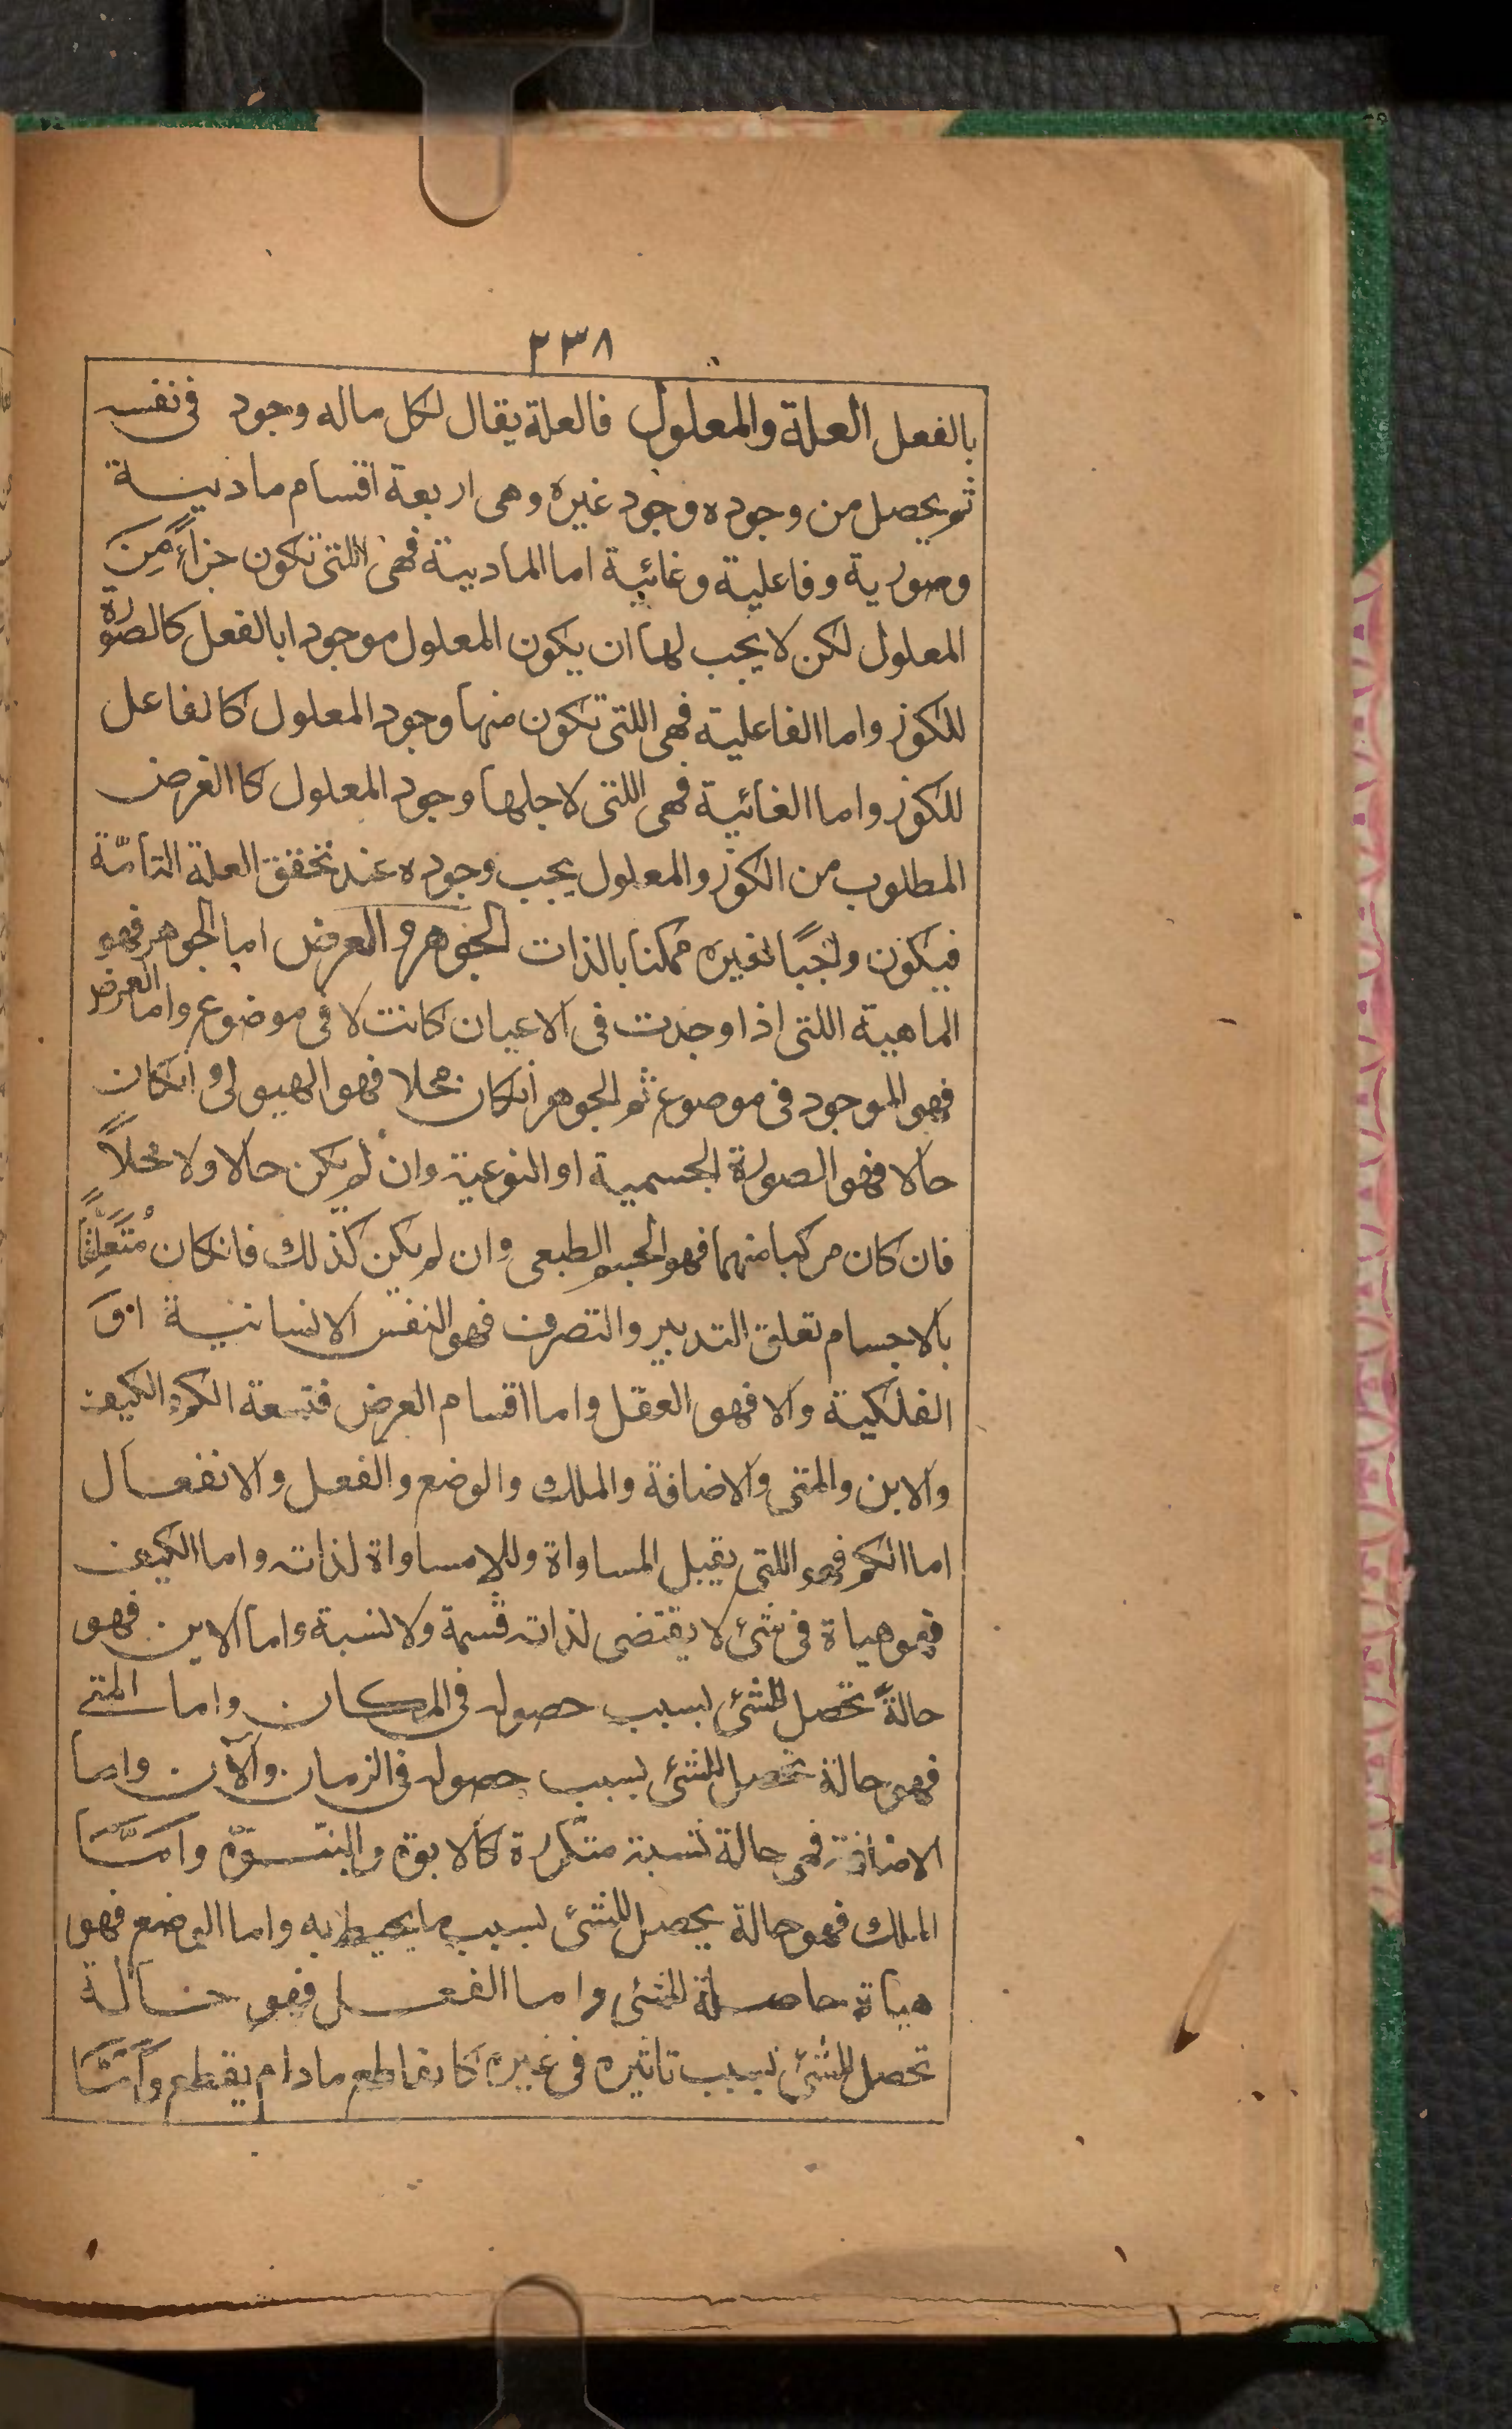 ٢٣٨
بالفعل العلة والمعلول فالعلة يقال لكل ماله وجود فى نفسه
ثم يحصل من وجوده وجود غيره وهى اربعة اقسام مادية
وصورية وفاعلية وغائية اما المادية فهى اللتى تكون جزاءً مِنَ
المعلول لكن لا يجب لها ان يكون المعلول موجودا بالفعل كالصورة
للكوز واما الفاعلية فهى اللتى تكون منها وجود المعلول كالفاعل
للكوز واما الغائية فهى اللتى لاجلها وجود المعلول كا الغرض
المطلوب من الكوز والمعلول يجب وجوده عند تحقق العلة التامّة
فيكون واجبًا لغيره ممكنا بالذات الجوهر والعرض اما الجوهر فهو
الماهية اللتى اذا وجدت فى الاعيان كانت لا فى موضوع واما العرض
فهو الموجود فى موضوع ثم الجوهر انكان محلا فهو الهيولى وانكان
حالا فهو الصورة الجسمية او النوعية وان لم يكن حالا ولا محلاً
فان كان مركبا منهما فهو الجسم الطبعى وان لم يكن كذلك فانكان مُتَعَلِّقًا
بالاجسام تعلق التدبير والتصرف فهو النفس الانسانية اوَ
الفلكية والا فهو العقل واما اقسام العرض فتسعة الكم والكيف
والاين والمتى والاضافة والملك والوضع والفعل والانفعال
اما الكم فهو اللتى يقبل المساواة وللامساواة لذاته واما الكيف
فهو هياة فى شئ لا يقتضى لذاته قسمة ولا نسبة واما الاين فهو
حالةً تحصل للشئ بسبب حصوله فى المكان واما المتى
فهى حالة تحصل للشئ بسبب حصوله فى الزمان والآن واما
الاضافة فهى حالة نسبة متكررة كالابوة والبنوّة وامّا
الملك فهو حالة يحصل للشئ بسبب ما يحيط به واما الوضع فهو
هياة حاصلة للشئ واما الفعل فهو حالة
تحصل للشئ بسبب تاثيره فى غيره كا لقاطع مادام يقطع وامّا